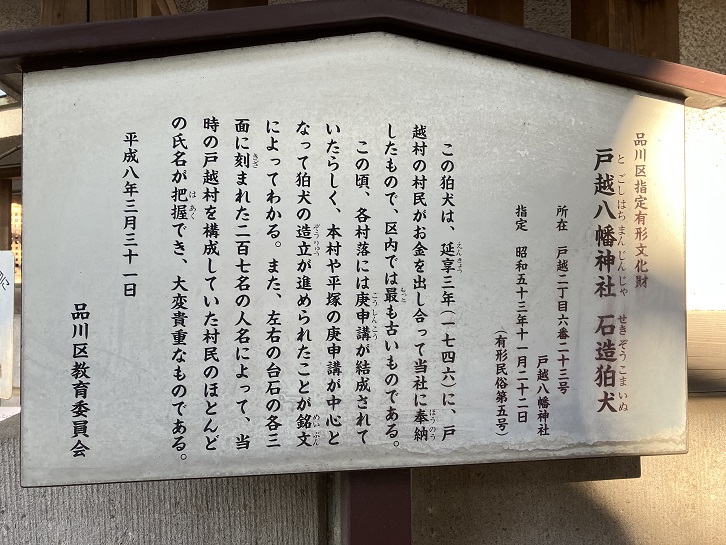 品川区指定有形文化財
戸越八幡神社 石造狛犬
とごしはちまんじんじゃ せきぞうこまいぬ
所在 戸越二丁目六番二十三号
戸越八幡神社
指定 昭和五十三年十一月二十二日
(有形民俗第五号)
この狛犬は、延享三年(一七四六)に、戸
えんきょう
越村の村民がお金を出し合って当社に奉納
ほうのう
したもので、区内では最も古いものである。
もっと
この頃、各村落には庚申講が結成されて
こうしんこう
いたらしく、本村や平塚の庚申講が中心と
なって狛犬の造立が進められたことが銘文
ぞうりゅう めいぶん
によってわかる。また、左右の台石の各三
面に刻まれた二百七名の人名によって、当
きざ
時の戸越村を構成していた村民のほとんど
の氏名が把握でき、大変貴重なものである。
はあく
平成八年三月三十一日
品川区教育委員会